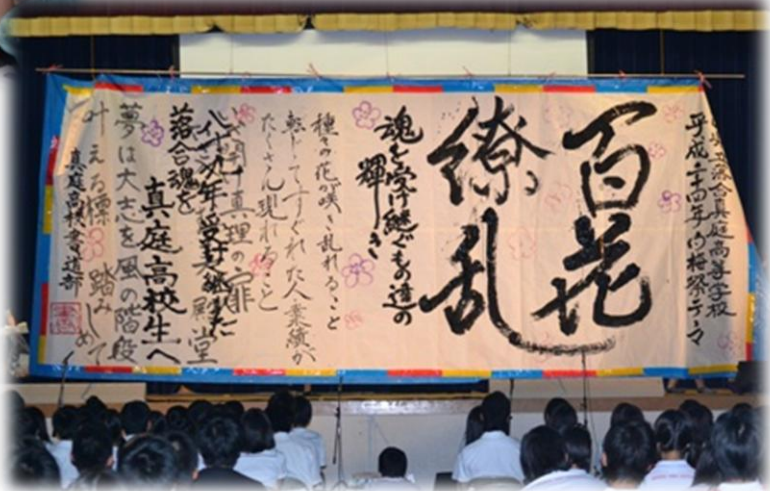 落合真庭高等学校
平成二十四年の梅祭テーマ
百花
繚乱
魂を受け継ぐもの達の
輝き
種々の花が咲き乱れること
転じてすぐれた人・業績が
たくさん現れること
真理の扉
殿堂
八十九年の
落合魂を
真庭高校生へ
夢は大志を風の階段
叶える標 踏みしめて
真庭高校書道部